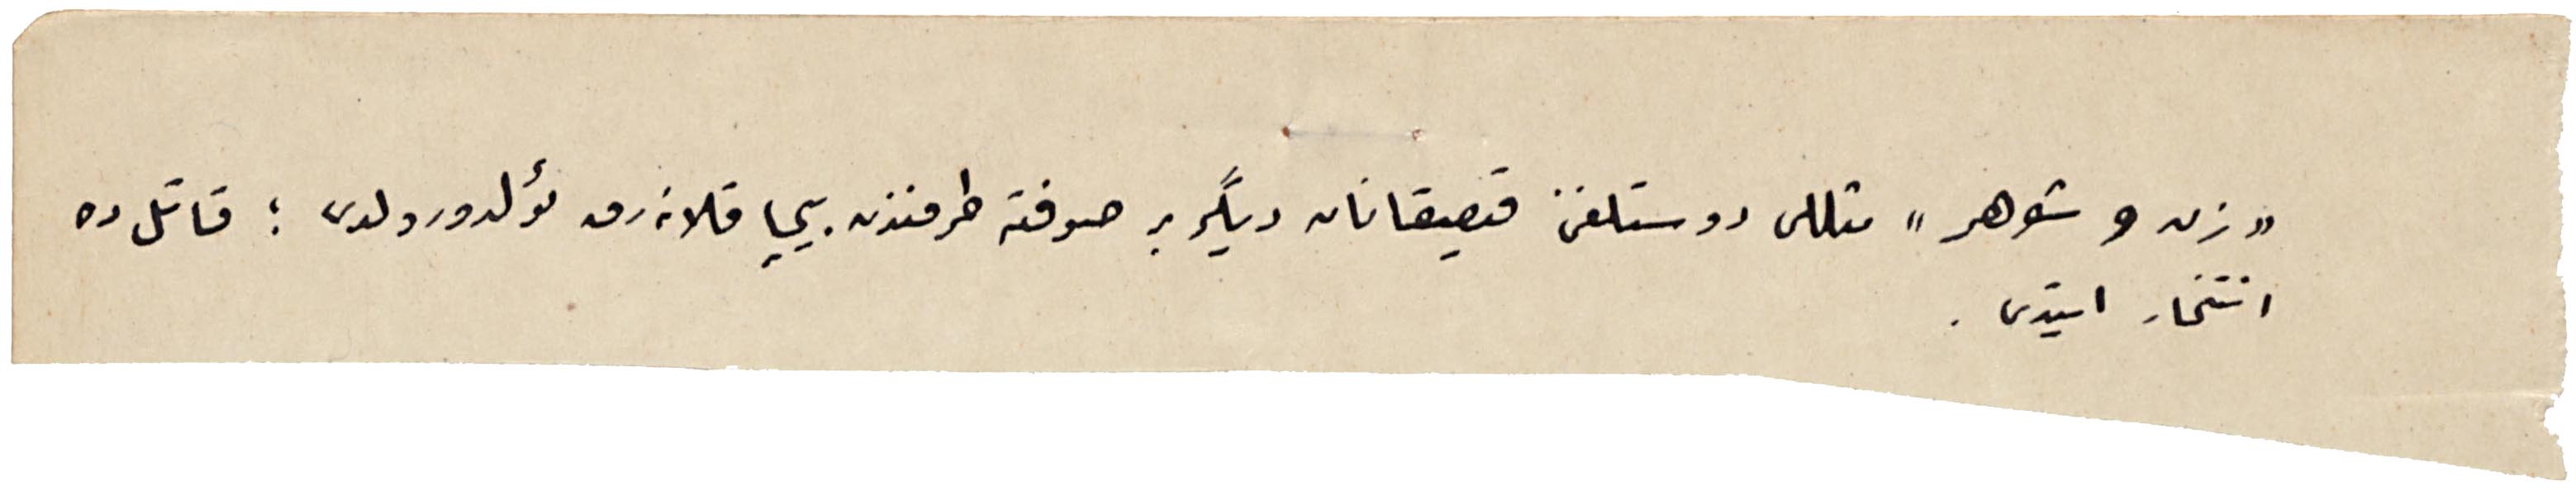 « زن و شوهر » مثللى دوستلغنى قيصقانان ديگر بر صوفته طرفندن بيچاقلانه‌رق ئولدورولدى ؛ قاتل ده
انتحار ايتدى .